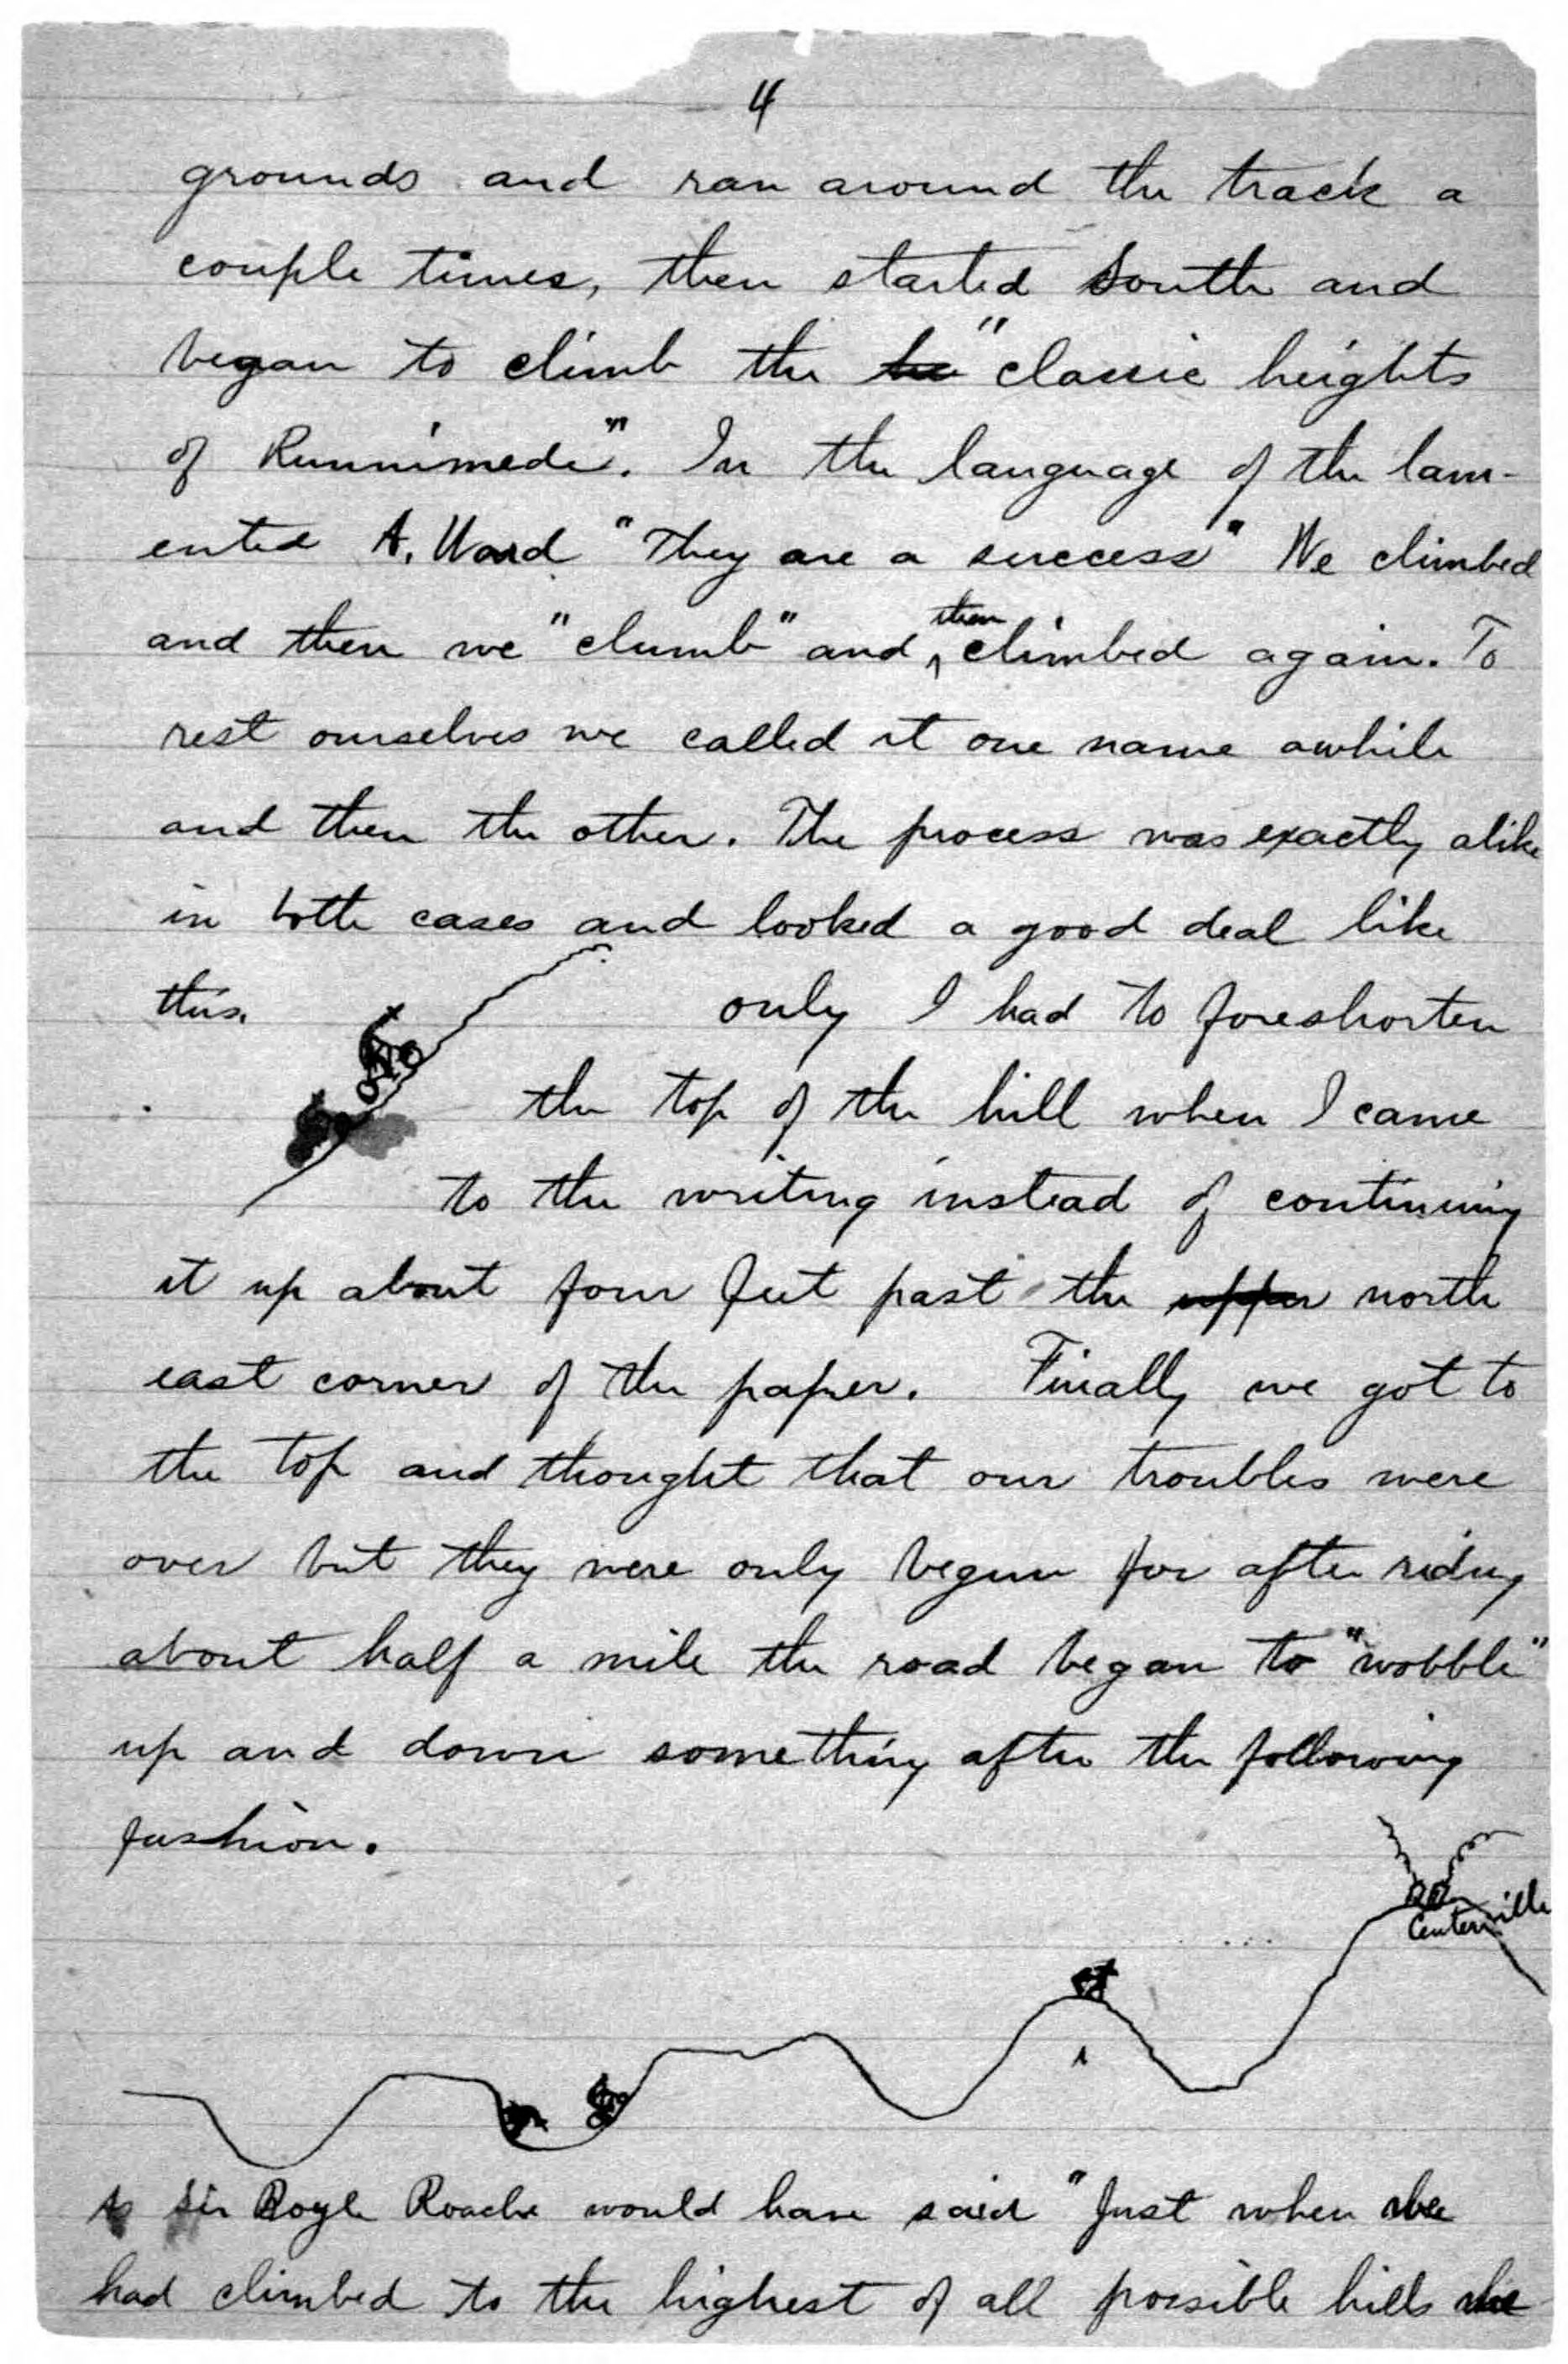 4
grounds and ran around the track a
couple times, then started South and
began to climb the "classic heights
of Runnimede". In the language of the lam-
ented A. Ward "They are a success" We climbed
and then we "clumb" and then climbed again. To
rest ourselves we called it one name awhile
and then the other. The process was exactly alike
in both cases and looked a good deal like
this. only I had to foreshorten
the top of the hill when I came
to the writing instead of continuing
it up about four feet past the upper north
east corner of the paper. Finally we got to
the top and thought that our troubles were
over but they were only begun for after riding
about half a mile the road began to "wobble"
up and down something after the following
fashion.
Centerville
As Sir Boyle Roache would have said "Just when we
had climbed to the highest of all possible hills we